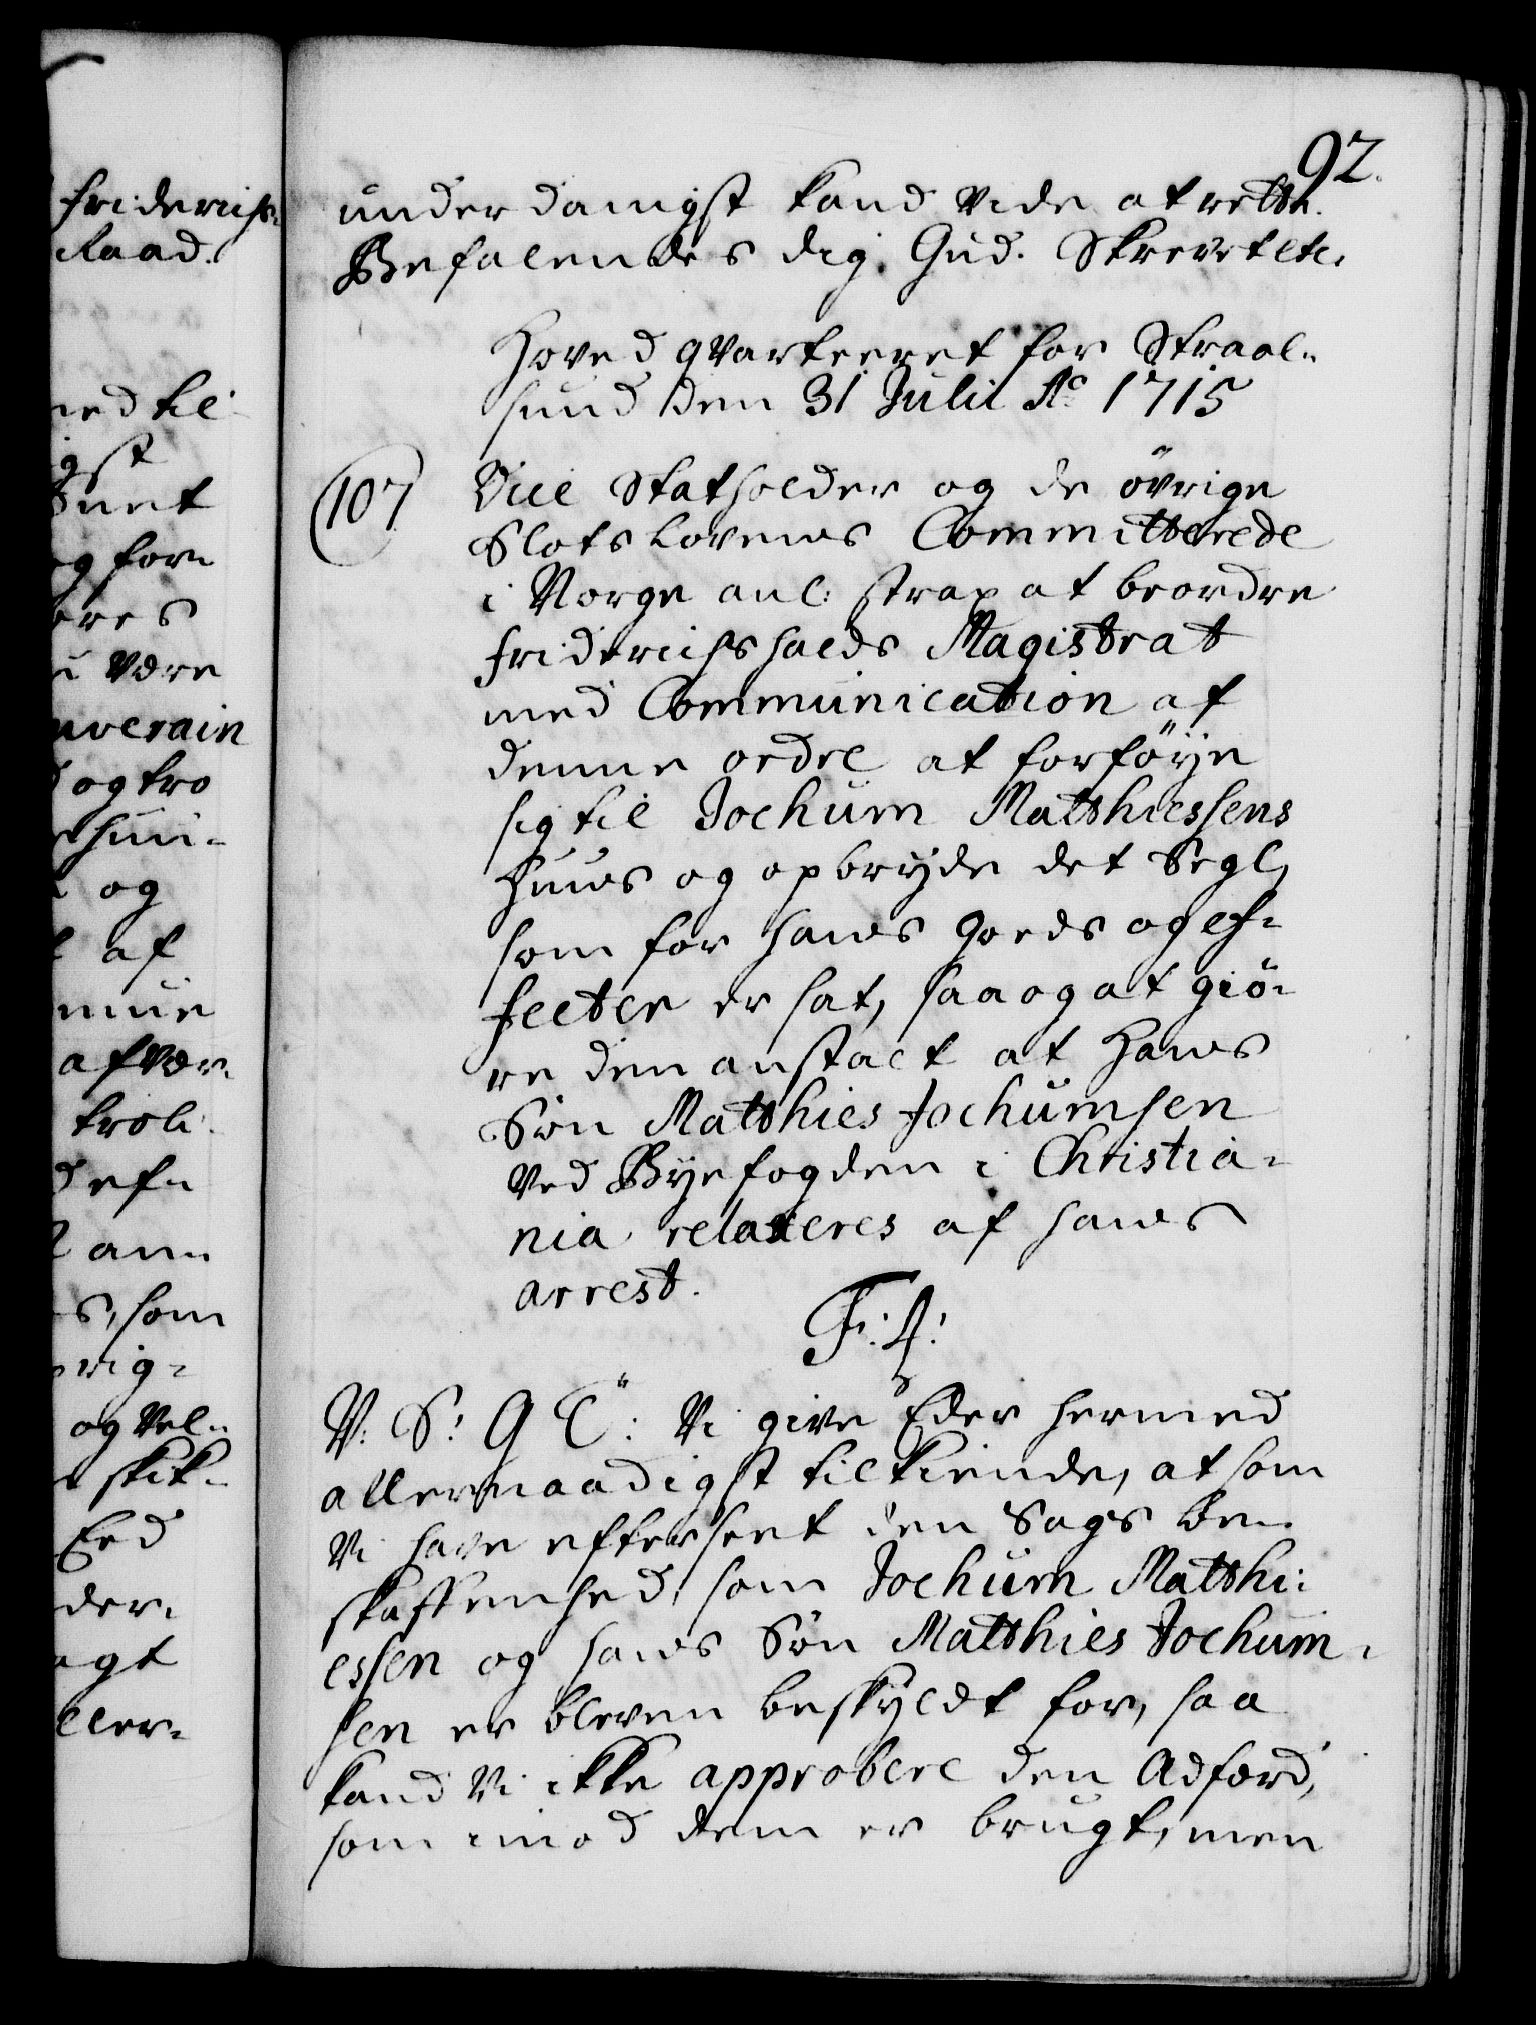 92.
Friderichs-
Raad.
ned til
gst
og for-
eres
u være
uverain
d og tro
og
af
afvær-
trol-
som
og vel-
skik-
Eed
der-
agt
ller-
underdanigst kand vide at rette.
Befalendes dig Gud. Skrevet etc.
Hoved qvarteeret for Straal-
sund den 31 Julii Ao 1715
107
Vice Statholder og de övrige
Slots Lovens Committerede
i Norge anl: strax at beordre
Friderichshalds Magistrat
med Communication af
denne ordre at forföye
sig til Jochum Matthiessens
Huus og opbryde det Segl,
som for hans goeds og ef-
fecter er sat, saa og at giö-
re den anstalt at Hans
Sön Matthies Jochumsen
ved Byefogden i Christia-
nia relaxeres af hans
arrest.
F: 4:
V: S: G T: Vi give Eder hermed
allernaadigst tilkiende, at som
Vi have efterseet den Sags Be-
skaffenhed, som Jochum Matthi-
essen og hans Sön Matthies Jochum-
sen er bleven beskyldt for, saa
kand Vi ikke approbere den Adfærd,
som imod dem er brugt, men